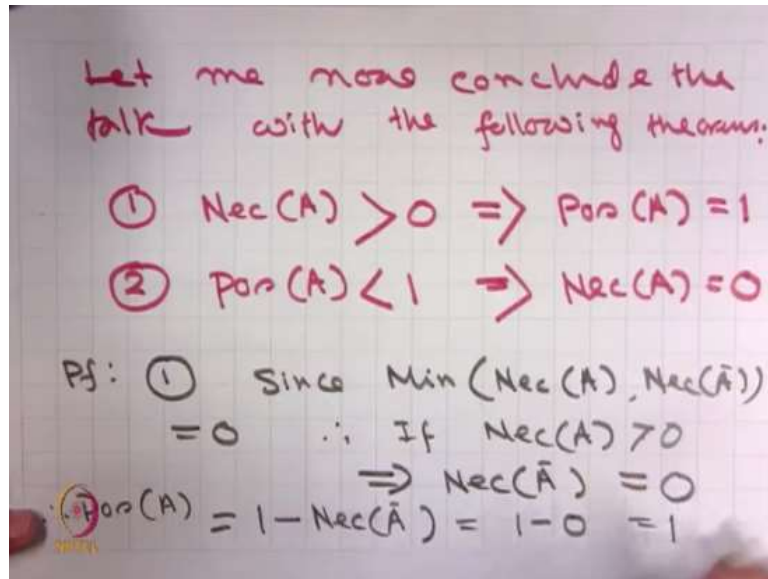 Let me now conclude the
talk with the following theorems:
① Nec(A) > 0 => Pos(A) = 1
② Pos(A) < 1 => Nec(A) = 0
Pf: ① Since Min(Nec(A), Nec(Ā))
= 0 ∴ If Nec(A) > 0
=> Nec(Ā) = 0
∴ Pos(A) = 1 - Nec(Ā) = 1 - 0 = 1
NPTEL